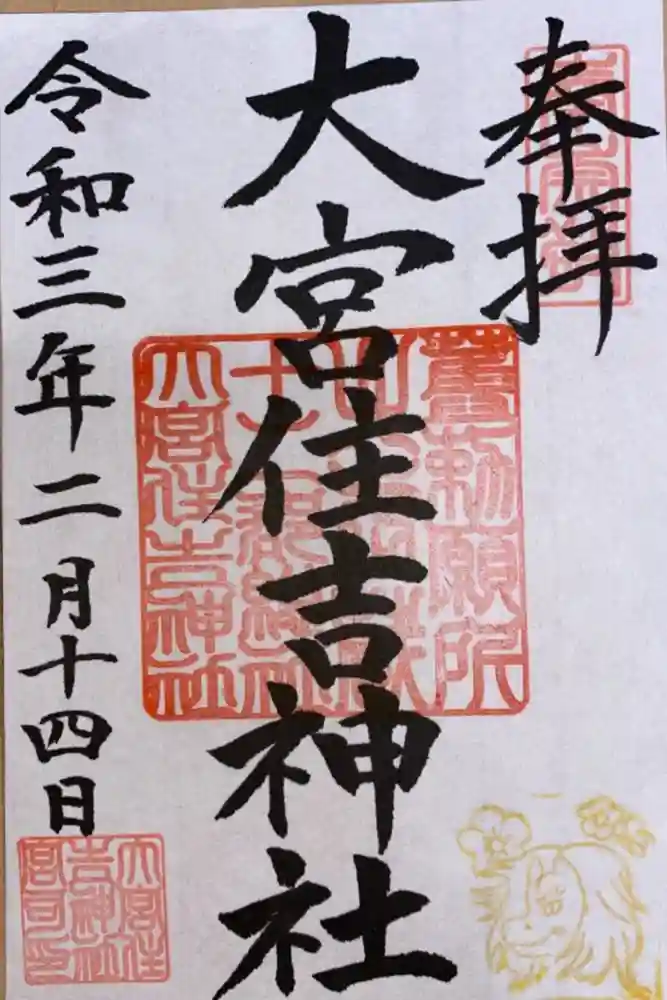 奉拝
大宮住吉神社
令和三年二月十四日
大宮住吉神社
大宮住
吉神社
宮司印